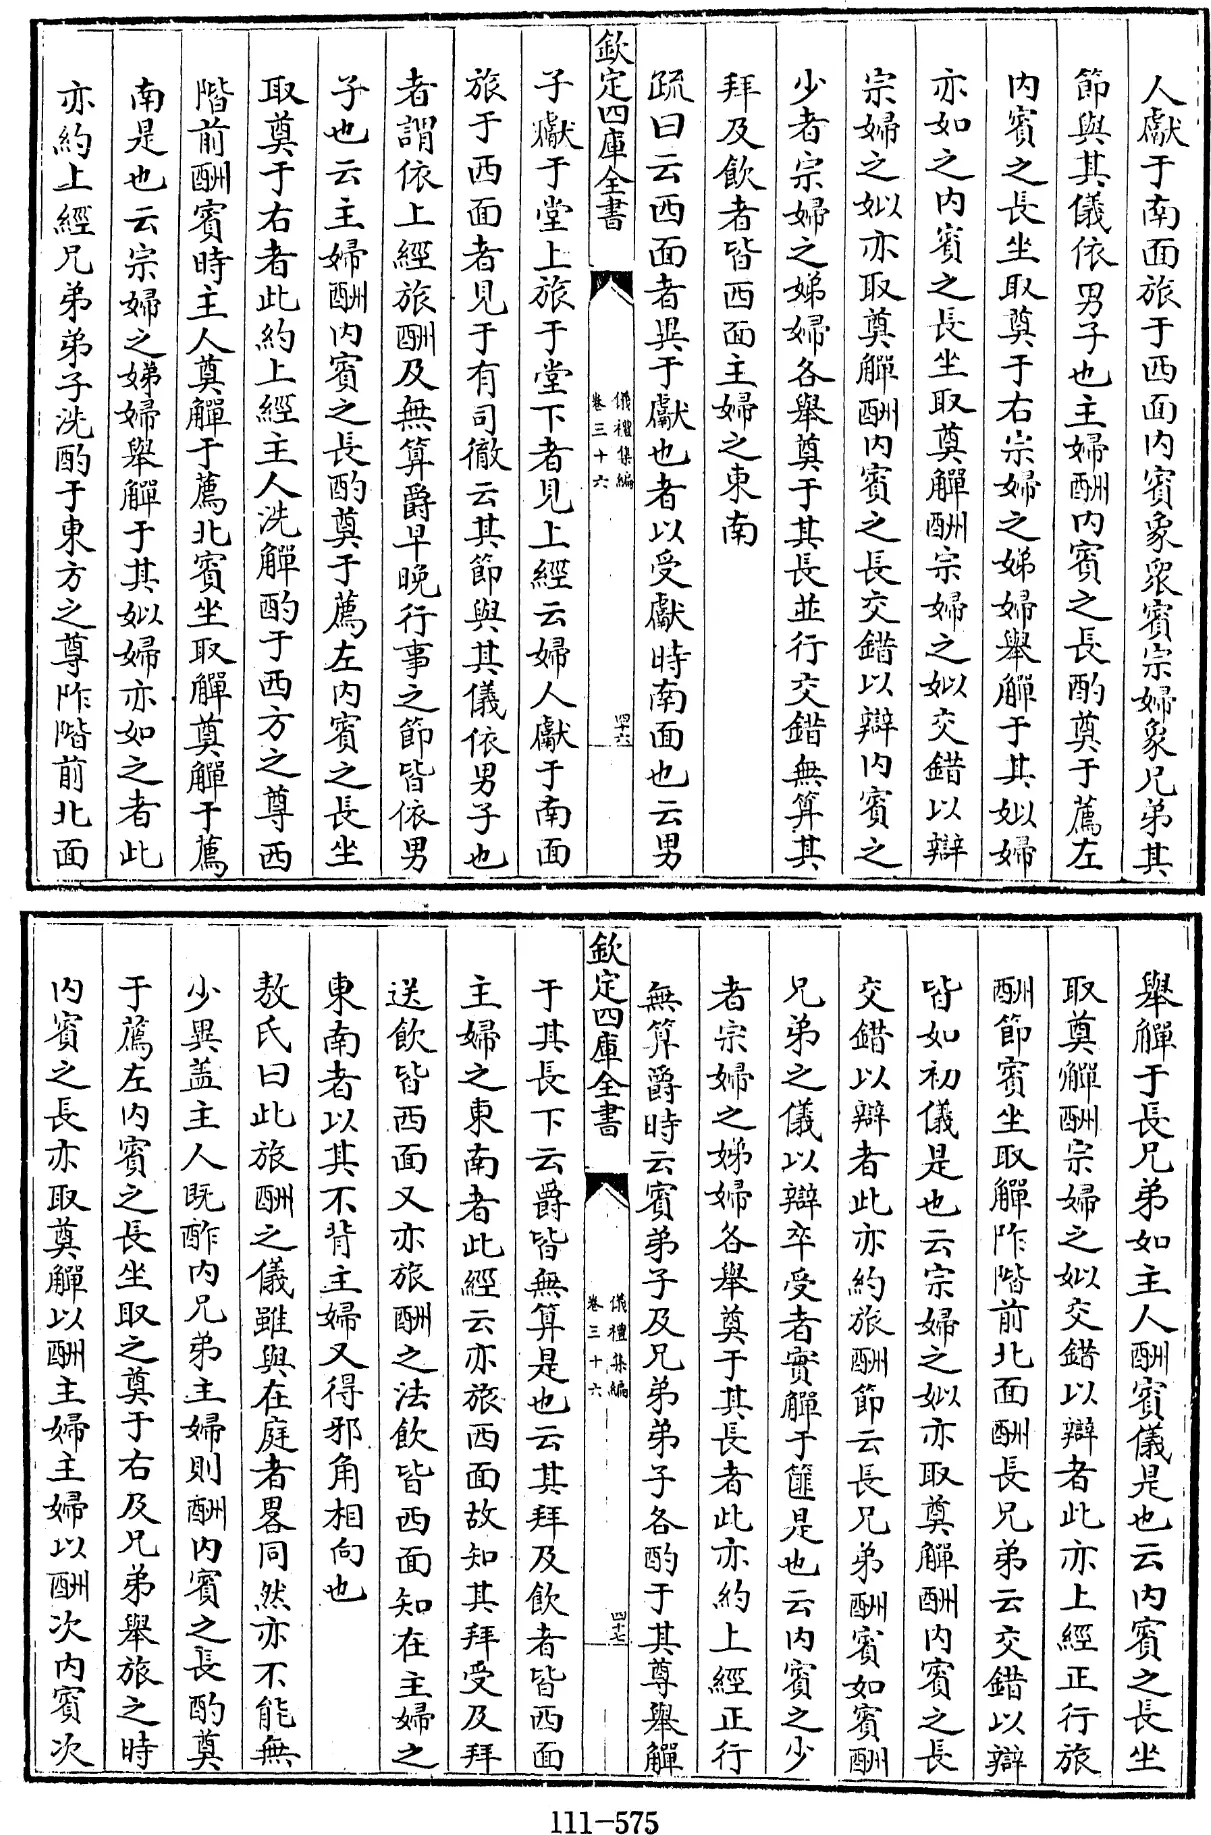 人獻于南面旅于西面内賓象衆賓宗婦象兄弟其
節與其儀依男子也主婦酬内賓之長酌奠于薦左
内賓之長坐取奠于右宗婦之娣婦舉觶于其姒婦
亦如之内賓之長坐取奠觶酬宗婦之姒交錯以辯
宗婦之姒亦取奠觶酬内賓之長交錯以辯内賓之
少者宗婦之娣婦各舉奠于其長並行交錯無算其
拜及飲者皆西面主婦之東南
疏曰云西面者異于獻也者以受獻時南面也云男
欽定四庫全書
儀禮集編
卷三十六
四十六
子獻于堂上旅于堂下者見上經云婦人獻于南面
旅于西面者見于有司徹云其節與其儀依男子也
者謂依上經旅酬及無算爵早晚行事之節皆依男
子也云主婦酬内賓之長酌奠于薦左内賓之長坐
取奠于右者此約上經主人洗觶酌于西方之尊西
階前酬賓時主人奠觶于薦北賓坐取觶奠觶于薦
南是也云宗婦之娣婦舉觶于其姒婦亦如之者此
亦約上經兄弟弟子洗酌于東方之尊阼階前北面
舉觶于長兄弟如主人酬賓儀是也云内賓之長坐
取奠觶酬宗婦之姒交錯以辯者此亦上經正行旅
酬節賓坐取觶阼階前北面酬長兄弟云交錯以辯
皆如初儀是也云宗婦之姒亦取奠觶酬内賓之長
交錯以辯者此亦約旅酬節云長兄弟酬賓如賓酬
兄弟之儀以辯卒受者實觶于篚是也云内賓之少
者宗婦之娣婦各舉奠于其長者此亦約上經正行
無算爵時云賓弟子及兄弟弟子各酌于其尊舉觶
欽定四庫全書
儀禮集編
卷三十六
四十七
于其長下云爵皆無算是也云其拜及飲者皆西面
主婦之東南者此經云亦旅西面故知其拜受及拜
送飲皆西面又亦旅酬之法飲皆西面知在主婦之
東南者以其不背主婦又得邪角相向也
敖氏曰此旅酬之儀雖與在庭者畧同然亦不能無
少異盖主人既酢内兄弟主婦則酬内賓之長酌奠
于薦左内賓之長坐取之奠于右及兄弟舉旅之時
内賓之長亦取奠觶以酬主婦主婦以酬次内賓次
111-575